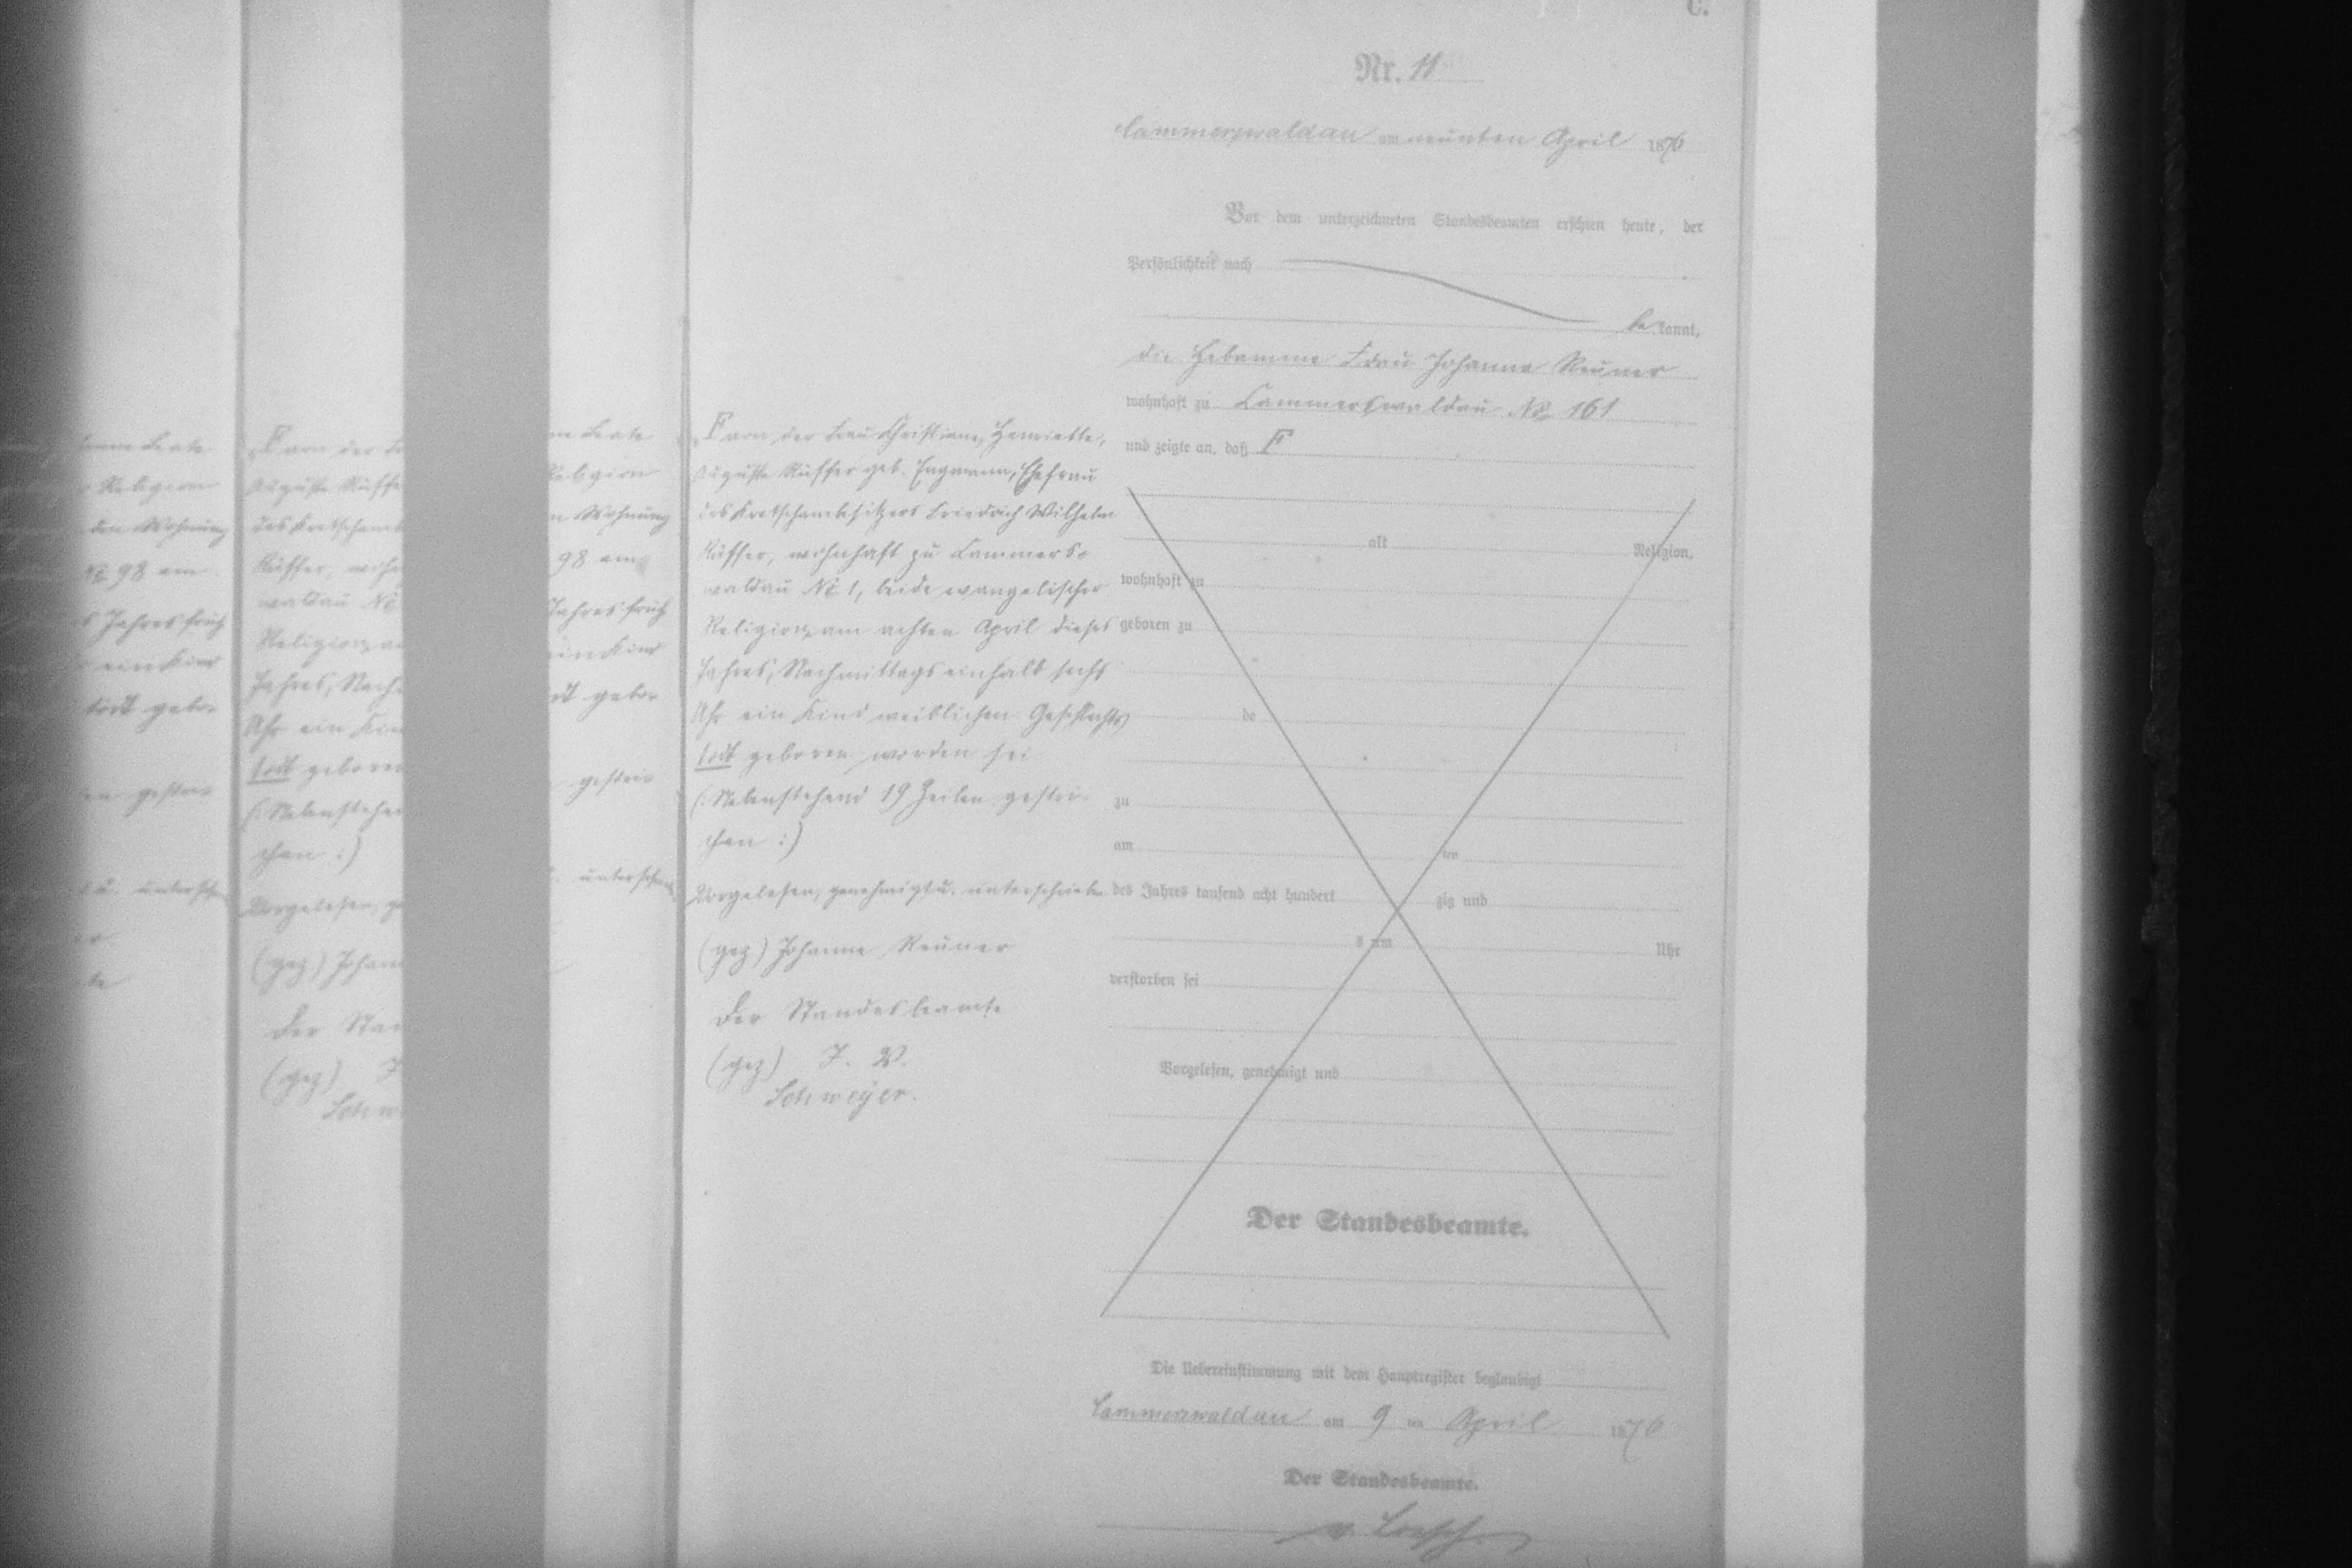 C.
Nr. 11
Cammerswaldau am neunten April 1876
Vor dem unterzeichneten Standesbeamten erschien heute, der
Persönlichkeit nach
bekannt,
die Hebamme Frau Johanne Reuner
wohnhaft zu Cammerswaldau No 161
und zeigte an, daß F
alt Religion,
wohnhaft zu
geboren zu
de
zu
am ten
des Jahres tausend acht hundert zig und
s um Uhr
verstorben sei
Vorgelesen, genehmigt und
Der Standesbeamte.
Die Uebereinstimmung mit dem Hauptregister beglaubigt
Cammerswaldau am 9 ten April 1876
Der Standesbeamte.
v. Loesch
F von der Frau Christiane, Henriette,
Auguste Rüffer geb. Engmann, Ehefrau
des Kretschambesitzers Friedrich Wilhelm
Rüffer, wohnhaft zu Cammers-
waldau No 1, beide evangelischer
Religion, am achten April dieses
Jahres, Nachmittags einhalb sechs
Uhr ein Kind weiblichen Geschlechts
todt geboren worden sei
(: Nebenstehend 19 Zeilen gestri-
chen :)
Vorgelesen, genehmigt u. unterschrieben
(gez) Johanne Reuner
Der Standesbeamte
(gez) J. V.
Schweyer.